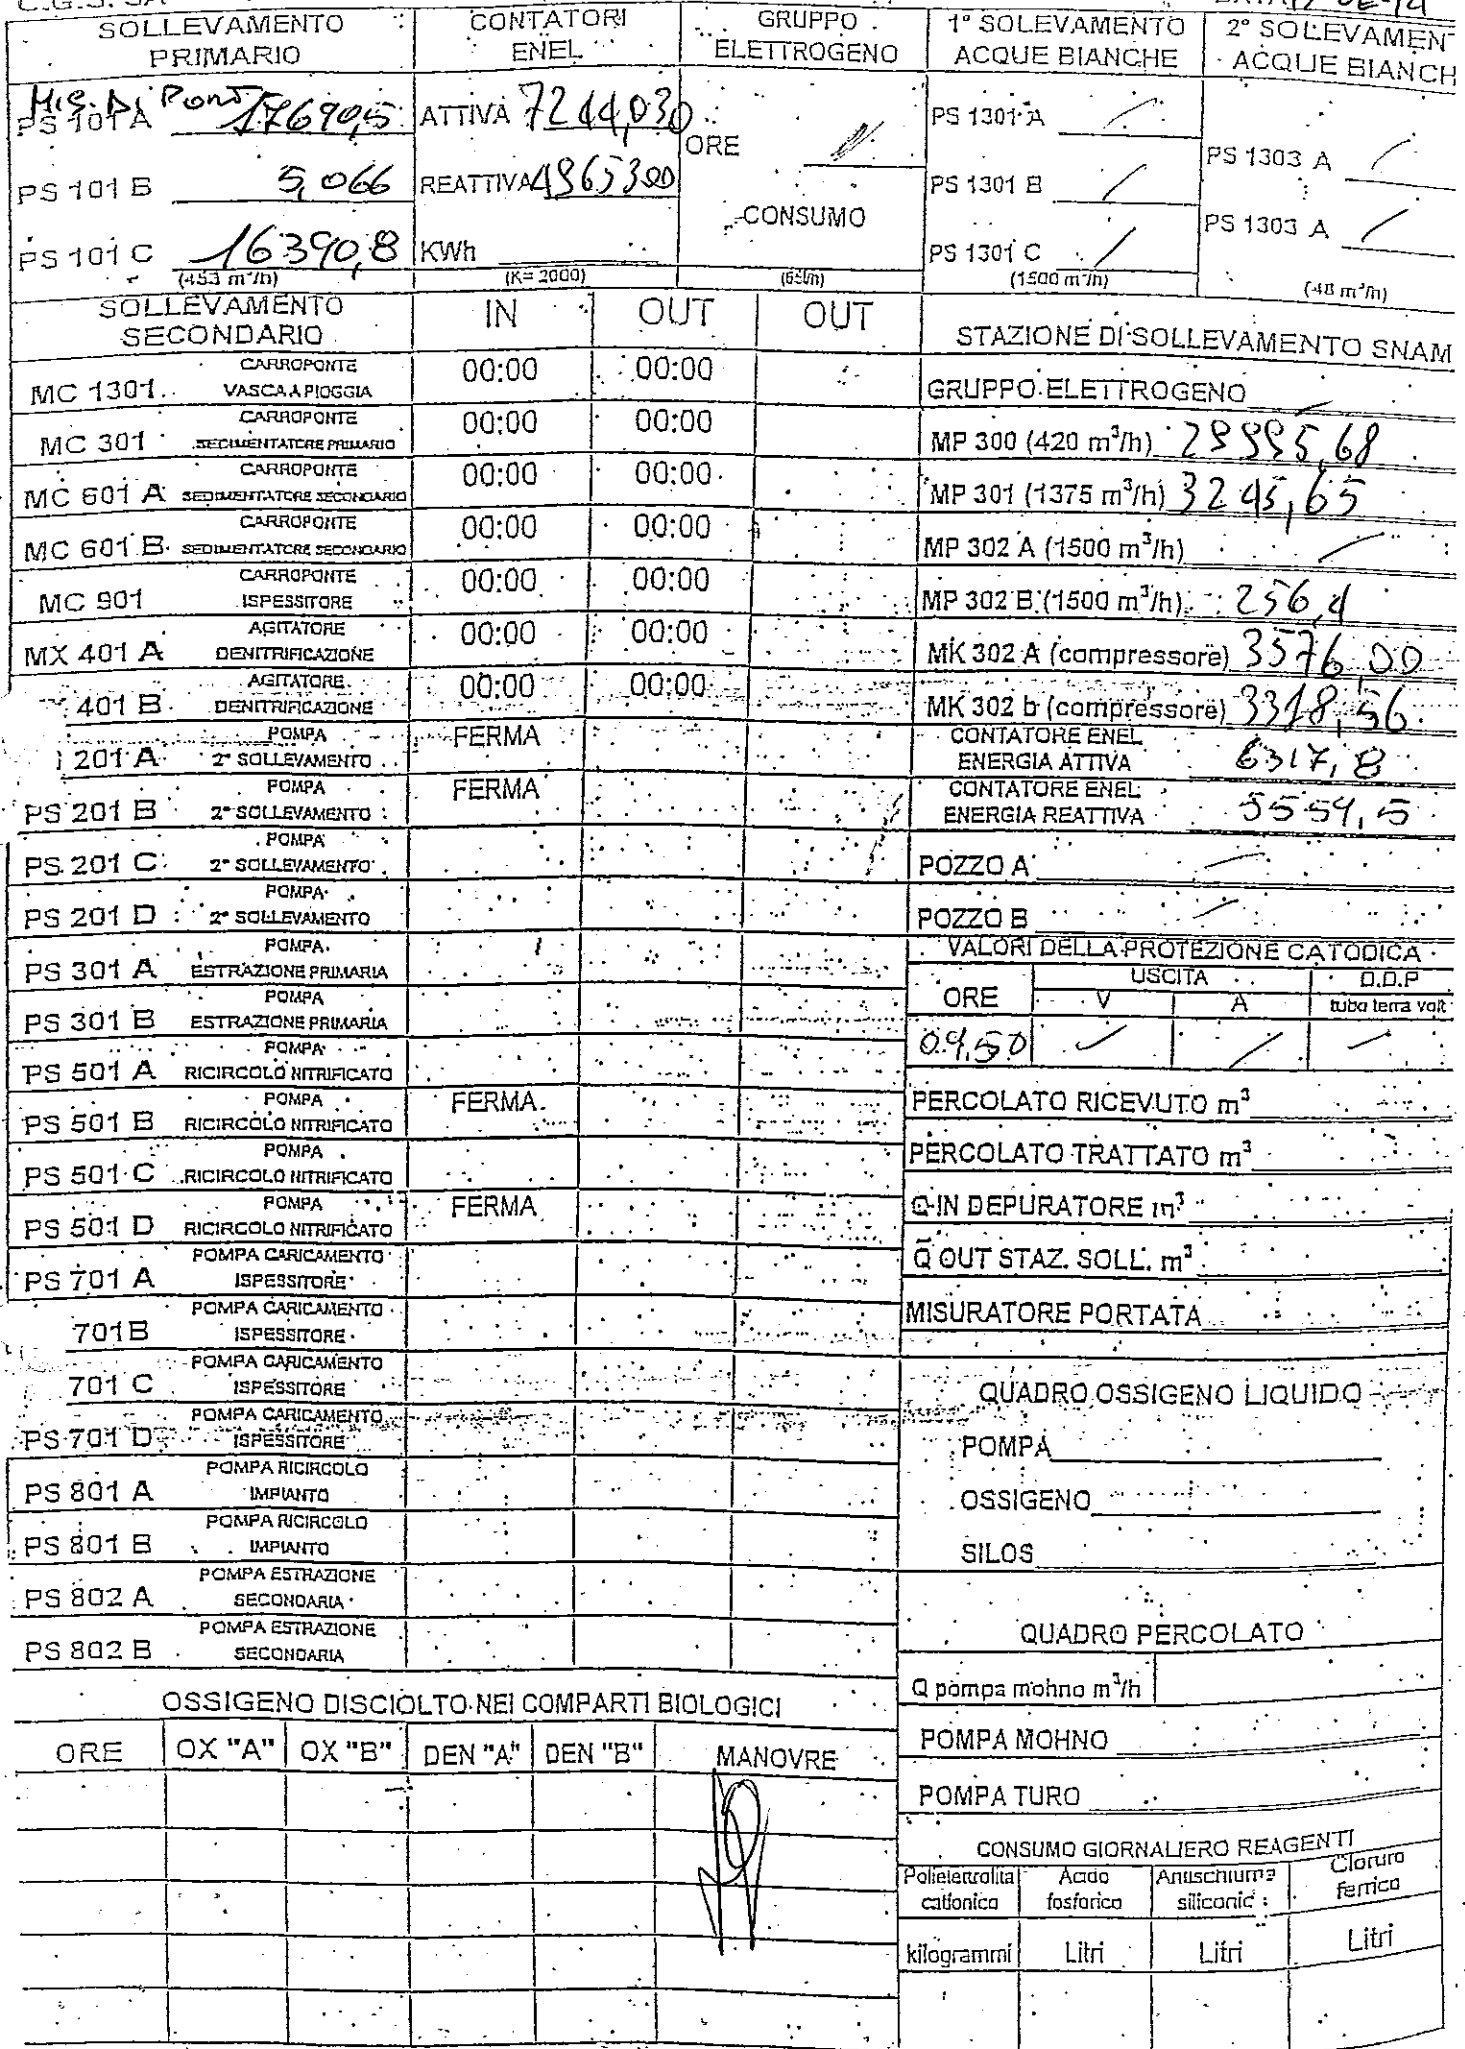 SOLLEVAMENTO PRIMARIO
PS 101 A 17690,5
PS 101 B 5,066
PS 101 C 16390,8
(453 m³/h)
CONTATORI ENEL
ATTIVA 7244,030
REATTIVA 4965300
KWh
(K= 2000)
GRUPPO ELETTROGENO
ORE
CONSUMO
1° SOLEVAMENTO ACQUE BIANCHE
PS 1301 A /
PS 1301 B /
PS 1301 C /
(1500 m³/h)
2° SOLEVAMEN
ACQUE BIANCH
PS 1303 A /
PS 1303 A /
(48 m³/h)
SOLLEVAMENTO SECONDARIO IN OUT OUT
MC 1301 CARROPONTE VASCA A PIOGGIA 00:00 00:00
MC 301 CARROPONTE SEDIMENTATORE PRIMARIO 00:00 00:00
MC 601 A CARROPONTE SEDIMENTATORE SECONDARIO 00:00 00:00
MC 601 B CARROPONTE SEDIMENTATORE SECONDARIO 00:00 00:00
MC 901 CARROPONTE ISPESSITORE 00:00 00:00
MX 401 A AGITATORE DENITRIFICAZIONE 00:00 00:00
401 B AGITATORE DENITRIFICAZIONE 00:00 00:00
201 A POMPA 2° SOLLEVAMENTO FERMA
PS 201 B POMPA 2° SOLLEVAMENTO FERMA
PS 201 C POMPA 2° SOLLEVAMENTO
PS 201 D POMPA 2° SOLLEVAMENTO
PS 301 A POMPA ESTRAZIONE PRIMARIA
PS 301 B POMPA ESTRAZIONE PRIMARIA
PS 501 A POMPA RICIRCOLO NITRIFICATO
PS 501 B POMPA RICIRCOLO NITRIFICATO FERMA
PS 501 C POMPA RICIRCOLO NITRIFICATO
PS 501 D POMPA RICIRCOLO NITRIFICATO FERMA
PS 701 A POMPA CARICAMENTO ISPESSITORE
701B POMPA CARICAMENTO ISPESSITORE
701 C POMPA CARICAMENTO ISPESSITORE
PS 701 D POMPA CARICAMENTO ISPESSITORE
PS 801 A POMPA RICIRCOLO IMPIANTO
PS 801 B POMPA RICIRCOLO IMPIANTO
PS 802 A POMPA ESTRAZIONE SECONDARIA
PS 802 B POMPA ESTRAZIONE SECONDARIA
STAZIONE DI SOLLEVAMENTO SNAM
GRUPPO ELETTROGENO
MP 300 (420 m³/h)
MP 301 (1375 m³/h) 3245,65
MP 302 A (1500 m³/h) /
MP 302 B (1500 m³/h) 256,4
MK 302 A (compressore) 3576,00
MK 302 b (compressore) 3318,56
CONTATORE ENEL ENERGIA ATTIVA 6317,8
CONTATORE ENEL ENERGIA REATTIVA 5554,5
POZZO A
POZZO B
VALORI DELLA PROTEZIONE CATODICA
ORE USCITA D.D.P
V A tubo terra volt
09,50 / / /
PERCOLATO RICEVUTO m³
PERCOLATO TRATTATO m³
Q IN DEPURATORE m³
Q OUT STAZ. SOLL. m³
MISURATORE PORTATA
QUADRO OSSIGENO LIQUIDO
POMPA
OSSIGENO
SILOS
QUADRO PERCOLATO
Q pompa mohno m³/h
POMPA MOHNO
POMPA TURO
OSSIGENO DISCIOLTO NEI COMPARTI BIOLOGICI
ORE OX "A" OX "B" DEN "A" DEN "B" MANOVRE
CONSUMO GIORNALIERO REAGENTI
Polielettrolita cationico Acido fosforico Antischiuma siliconic Cloruro ferrico
kilogrammi Litri Litri Litri